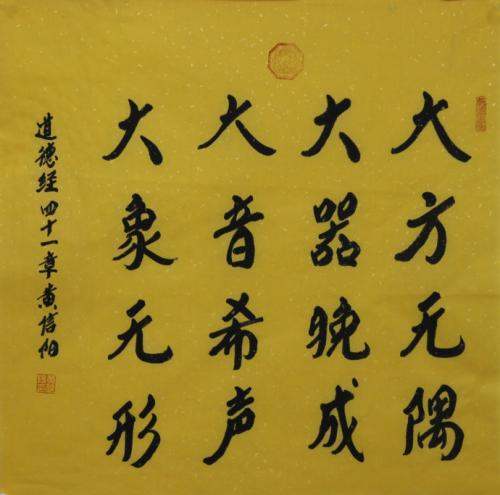 大方无隅
大器晚成
大音希声
大象无形
道德经四十一章黄信阳